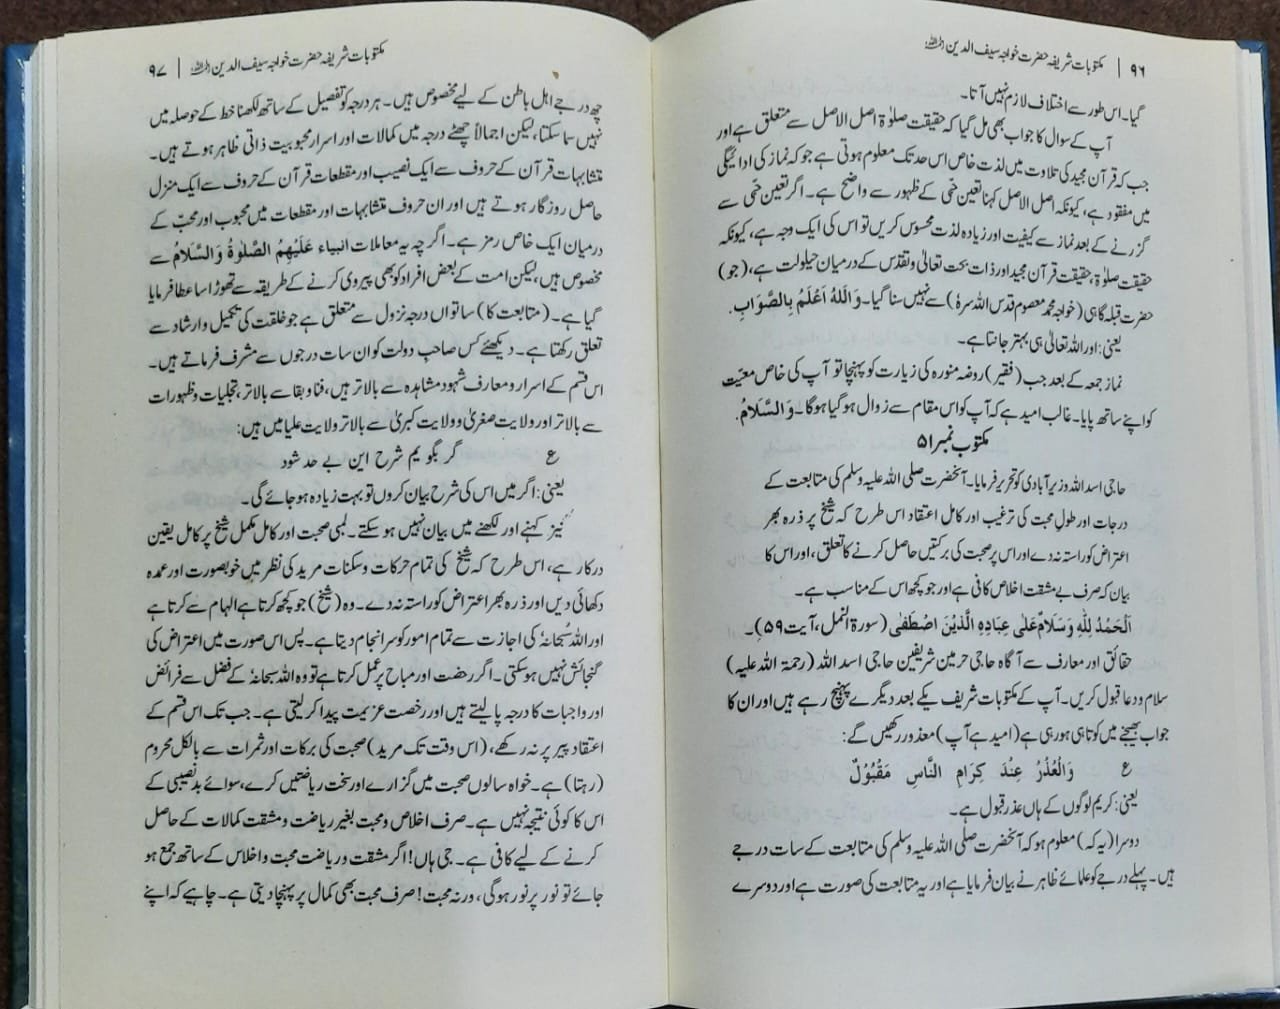 ۹۶ | مکتوبات شریفہ حضرت خواجہ سیف الدین رحمۃ اللہ علیہ
گیا۔ اس طور سے اختلاف لازم نہیں آتا۔
آپ کے سوال کا جواب بھی مل گیا کہ حقیقت صلوٰۃ اصل الاصل سے متعلق ہے اور
جب کہ قرآن مجید کی تلاوت میں لذت خاص اس حد تک معلوم ہوتی ہے جو کہ نماز کی ادائیگی
میں مفقود ہے، کیونکہ اصل الاصل کہنا تعین حُبی کے ظہور سے واضح ہے۔ اگر تعین حُبی سے
گزرنے کے بعد نماز سے کیفیت اور زیادہ لذت محسوس کریں تو اس کی ایک وجہ ہے، کیونکہ
حقیقت صلوٰۃ، حقیقت قرآن مجید اور ذات بحت تعالیٰ و تقدس کے درمیان حیلولت ہے، (جو)
حضرت قبلہ گاہی (خواجہ محمد معصوم قدس اللہ سرہٗ) سے نہیں سنا گیا۔ وَاللہُ اَعْلَمُ بِالصَّوَابِ.
یعنی: اور اللہ تعالیٰ ہی بہتر جانتا ہے۔
نماز جمعہ کے بعد جب (فقیر) روضہ منورہ کی زیارت کو پہنچا تو آپ کی خاص معیّت
کو اپنے ساتھ پایا۔ غالب امید ہے کہ آپ کو اس مقام سے زوال ہو گیا ہوگا۔ وَالسَّلَامُ.
مکتوب نمبر ۵۱
حاجی اسد اللہ وزیر آبادی کو تحریر فرمایا۔ آنحضرت صلی اللہ علیہ وسلم کی متابعت کے
درجات اور طولِ محبت کی ترغیب اور کامل اعتقاد اس طرح کہ شیخ پر ذرہ بھر
اعتراض کو راستہ نہ دے اور اس پر صحبت کی برکتیں حاصل کرنے کا تعلق، اور اس کا
بیان کہ صرف بے مشقت اخلاص کافی ہے اور جو کچھ اس کے مناسب ہے۔
اَلْحَمْدُ لِلّٰہِ وَسَلَامٌ عَلٰی عِبَادِہِ الَّذِیْنَ اصْطَفٰی (سورۃ النمل، آیت ۵۹)۔
حقائق اور معارف سے آگاہ حاجی حرمین شریفین حاجی اسد اللہ (رحمۃ اللہ علیہ)
سلام و دعا قبول کریں۔ آپ کے مکتوبات شریف یکے بعد دیگرے پہنچ رہے ہیں اور ان کا
جواب بھیجنے میں کوتاہی ہو رہی ہے (امید ہے آپ) معذور رکھیں گے:
ع وَالْعُذْرُ عِنْدَ کِرَامِ النَّاسِ مَقْبُوْلٌ
یعنی: کریم لوگوں کے ہاں عذر قبول ہے۔
دوسرا (یہ کہ) معلوم ہو کہ آنحضرت صلّی اللہ علیہ وسلم کی متابعت کے سات درجے
ہیں۔ پہلے درجے کو علمائے ظاہر نے بیان فرمایا ہے اور یہ متابعت کی صورت ہے اور دوسرے
مکتوبات شریفہ حضرت خواجہ سیف الدین رحمۃ اللہ علیہ | ۹۷
چھ درجے اہل باطن کے لیے مخصوص ہیں۔ ہر درجہ کو تفصیل کے ساتھ لکھنا خط کے حوصلہ میں
نہیں سما سکتا، لیکن اجمالاً چھٹے درجہ میں کمالات اور اسرار محبوبیت ذاتی ظاہر ہوتے ہیں۔
متشابہات قرآن کے حروف سے ایک نصیب اور مقطعات قرآن کے حروف سے ایک منزل
حاصل روزگار ہوتے ہیں اور ان حروف متشابہات اور مقطعات میں محبوب اور محبّ کے
درمیان ایک خاص رمز ہے۔ اگرچہ یہ معاملات انبیاء عَلَیْہِمُ الصَّلٰوۃُ وَالسَّلَامُ سے
مخصوص ہیں، لیکن امت کے بعض افراد کو بھی پیروی کرنے کے طریقہ سے تھوڑا سا عطا فرمایا
گیا ہے۔ (متابعت کا) ساتواں درجہ نزول سے متعلق ہے جو خلقت کی تکمیل و ارشاد سے
تعلق رکھتا ہے۔ دیکھئے کس صاحب دولت کو ان سات درجوں سے مشرف فرماتے ہیں۔
اس قسم کے اسرار و معارف شہود و مشاہدہ سے بالاتر ہیں، فنا و بقا سے بالاتر، تجلیات و ظہورات
سے بالاتر اور ولایت صغریٰ و ولایت کبریٰ سے بالاتر ولایت علیا میں ہیں:
ع گر بگویم شرح این بے حد شود
یعنی: اگر میں اس کی شرح بیان کروں تو بہت زیادہ ہو جائے گی۔
نیز کہنے اور لکھنے میں بیان نہیں ہو سکتے۔ لمبی صحبت اور کامل مکمل شیخ پر کامل یقین
درکار ہے، اس طرح کہ شیخ کی تمام حرکات و سکنات مرید کی نظر میں خوبصورت اور عمدہ
دکھائی دیں اور ذرہ بھر اعتراض کو راستہ نہ دے۔ وہ (شیخ) جو کچھ کرتا ہے الہام سے کرتا ہے
اور اللہ سُبحانہٗ کی اجازت سے تمام امور کو سرانجام دیتا ہے۔ پس اس صورت میں اعتراض کی
گنجائش نہیں ہو سکتی۔ اگر رخصت اور مباح پر عمل کرتا ہے تو وہ اللہ سبحانہٗ کے فضل سے فرائض
اور واجبات کا درجہ پا لیتے ہیں اور رخصت عزیمت پیدا کر لیتی ہے۔ جب تک اس قسم کے
اعتقاد پیر پر نہ رکھے، (اس وقت تک مرید) صحبت کی برکات اور ثمرات سے بالکل محروم
(رہتا) ہے۔ خواہ سالوں صحبت میں گزارے اور سخت ریاضتیں کرے، سوائے بدنصیبی کے
اس کا کوئی نتیجہ نہیں ہے۔ صرف اخلاص و محبت بغیر ریاضت و مشقت کمالات کے حاصل
کرنے کے لیے کافی ہے۔ جی ہاں! اگر مشقت و ریاضت محبت و اخلاس کے ساتھ جمع ہو
جائے تو نور پر نور ہوگی، ورنہ محبت! صرف محبت بھی کمال پر پہنچا دیتی ہے۔ چاہیے کہ اپنے